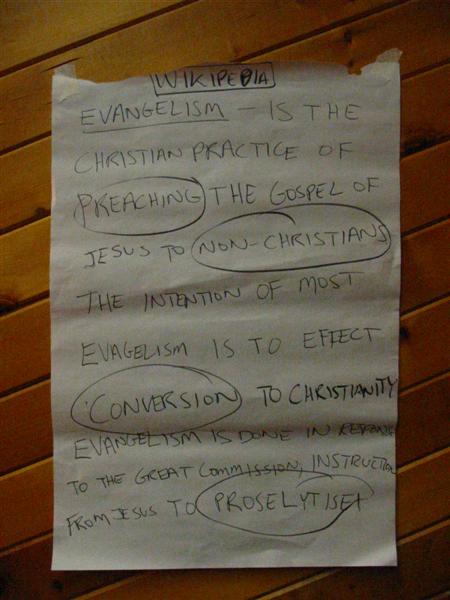 WIKIPEDIA
EVANGELISM - IS THE
CHRISTIAN PRACTICE OF
PREACHING THE GOSPEL OF
JESUS TO NON-CHRISTIANS
THE INTENTION OF MOST
EVAGELISM IS TO EFFECT
'CONVERSION TO CHRISTIANITY
EVANGELISM IS DONE IN RESPONSE
TO THE GREAT COMMISSION, INSTRUCTION
FROM JESUS TO PROSELYTISE